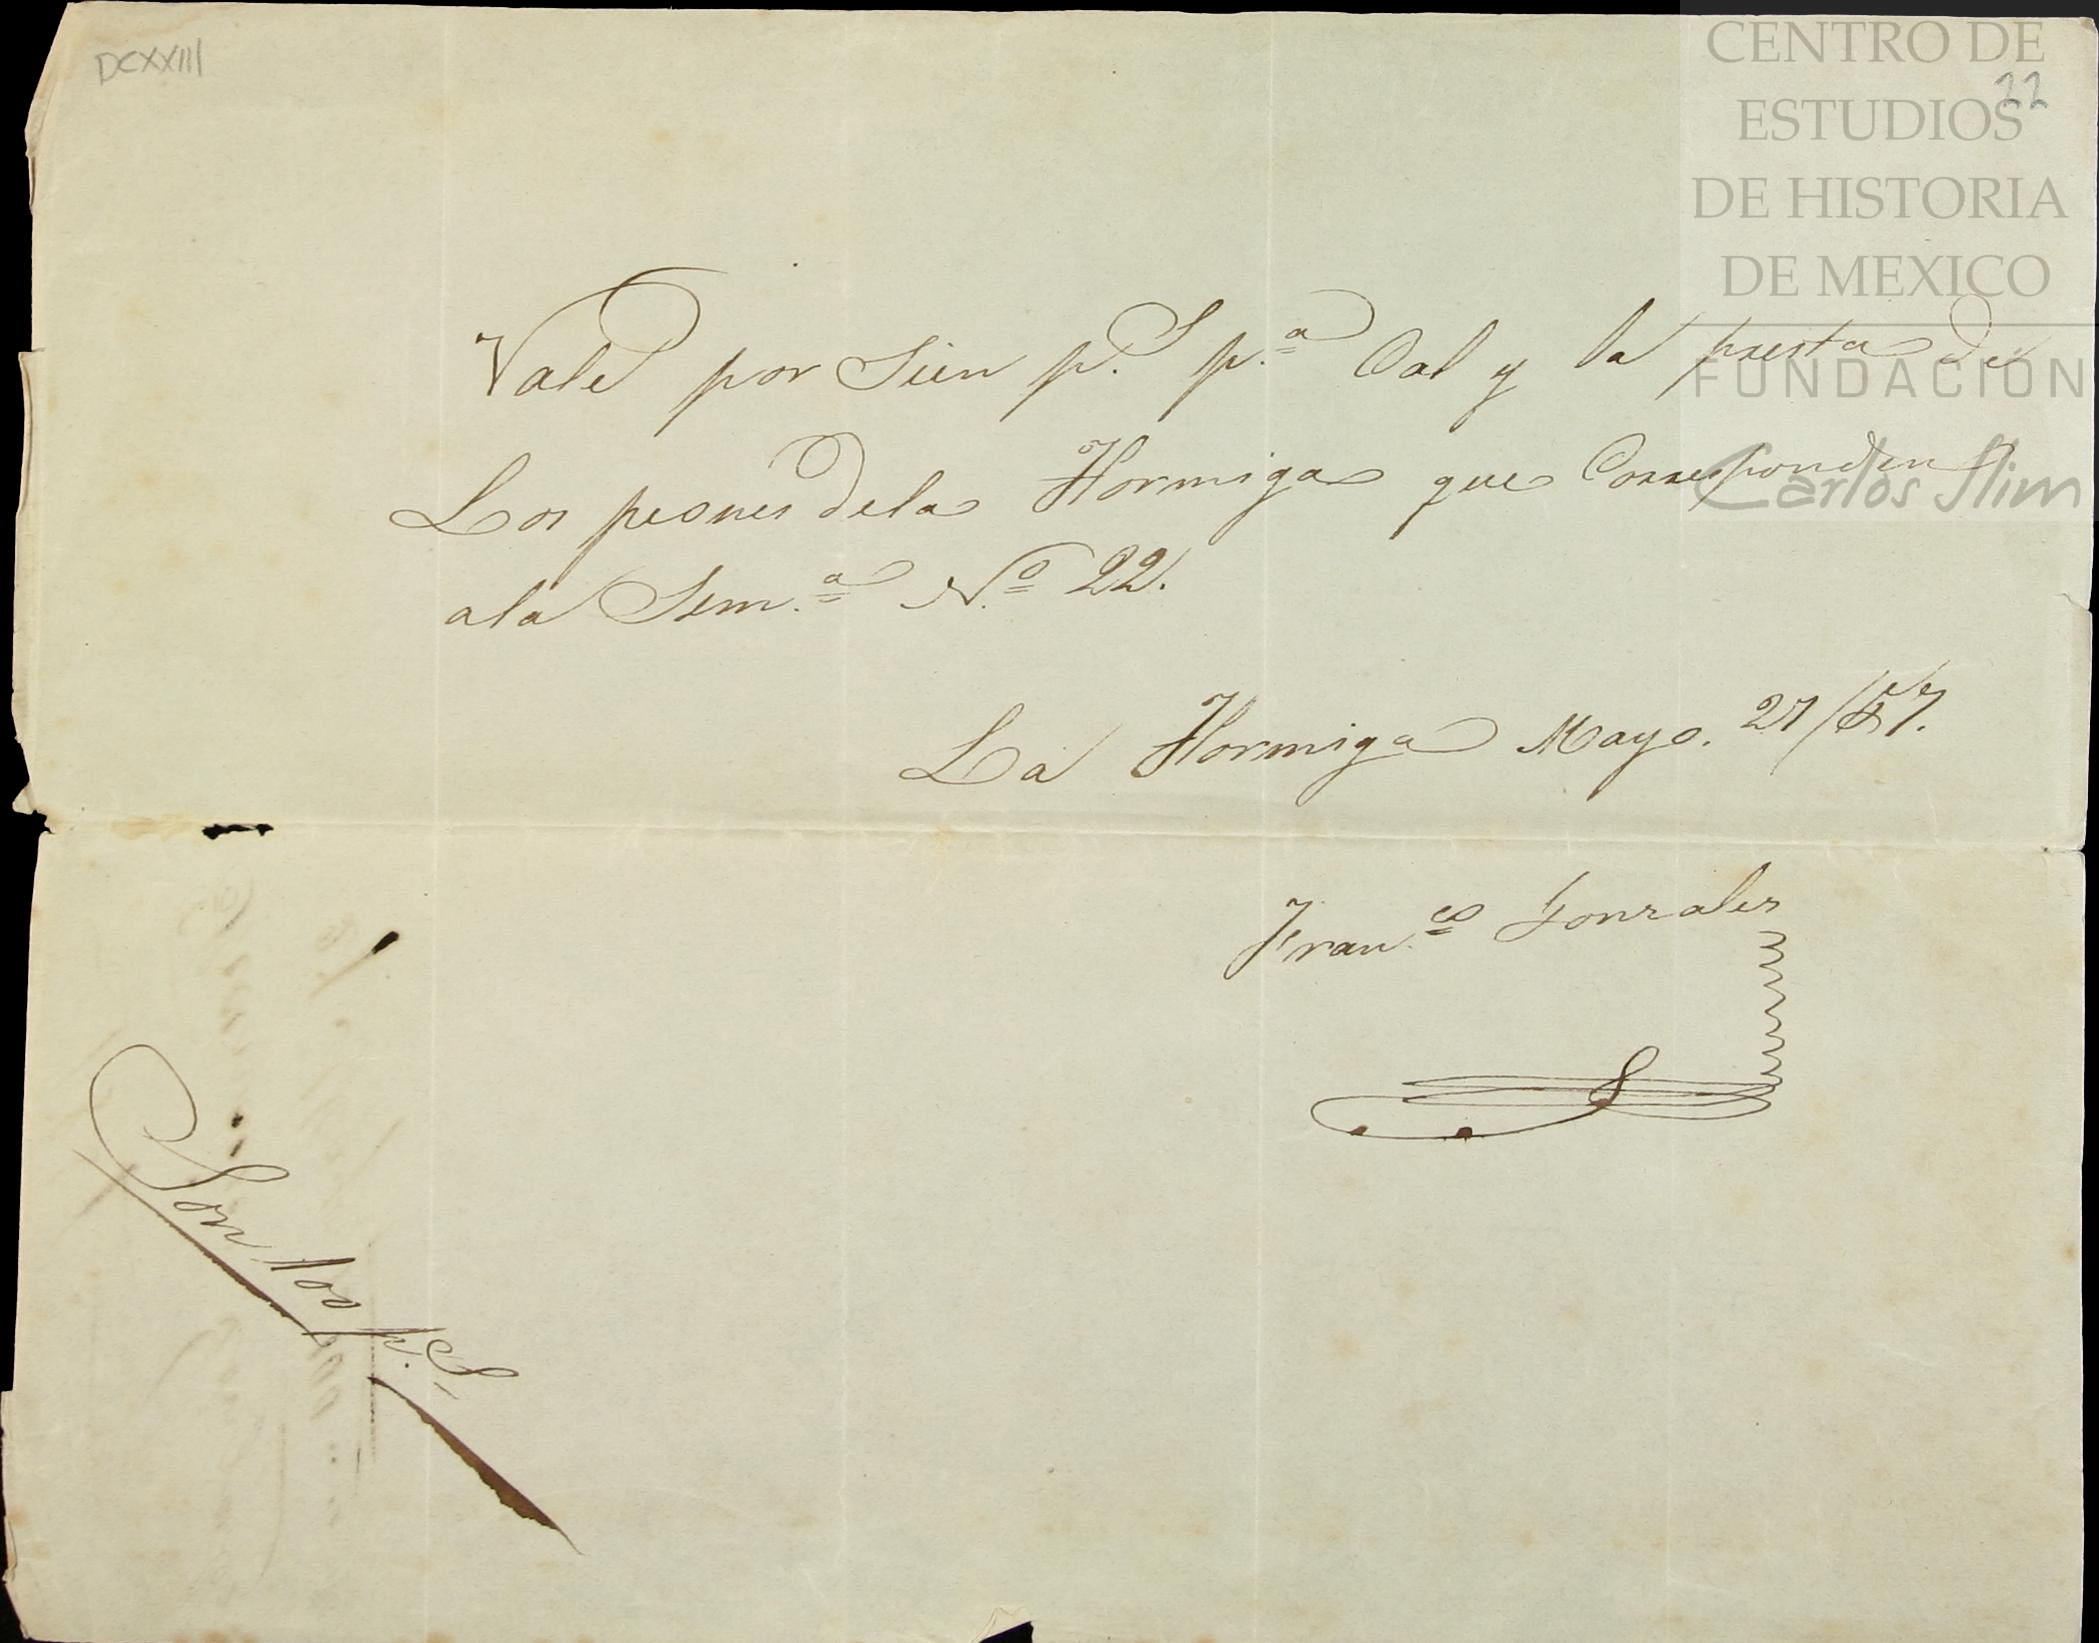 DCXXIII
22
CENTRO DE
ESTUDIOS
DE HISTORIA
DE MEXICO
FUNDACIÓN
Carlos Slim
Vale por Sien p.s p.a Cal y la de
Los peones dela Hormiga que Corresponden
ala Sem.a N.o 22.
La Hormiga Mayo. 27/57.
Fran.co Gonzales
Son 100 p.s